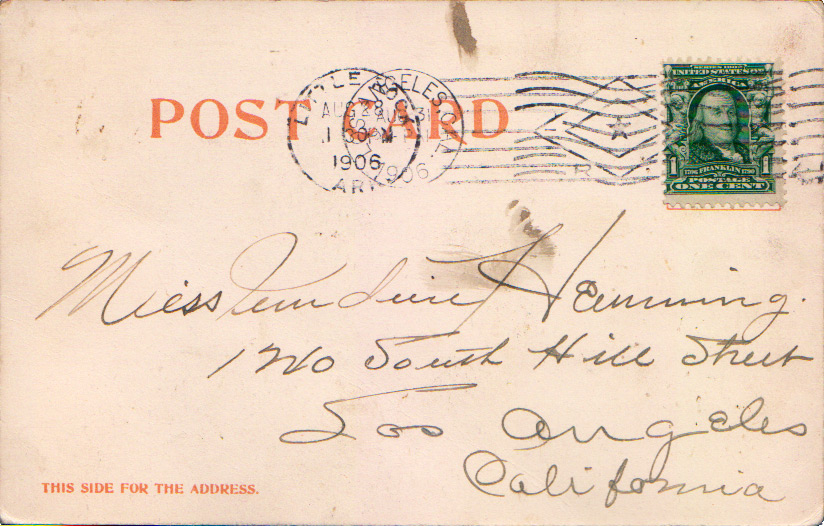 POST CARD
LITTLE ROCK
AUG 28
1 30 PM
1906
ARK
LOS ANGELES CAL
AUG 31
1906
R
SERIES 1902
UNITED STATES OF AMERICA
1 1706 FRANKLIN 1790 1
POSTAGE
ONE CENT
Miss Hemming.
South Hill Street
Los Angeles
California
THIS SIDE FOR THE ADDRESS.